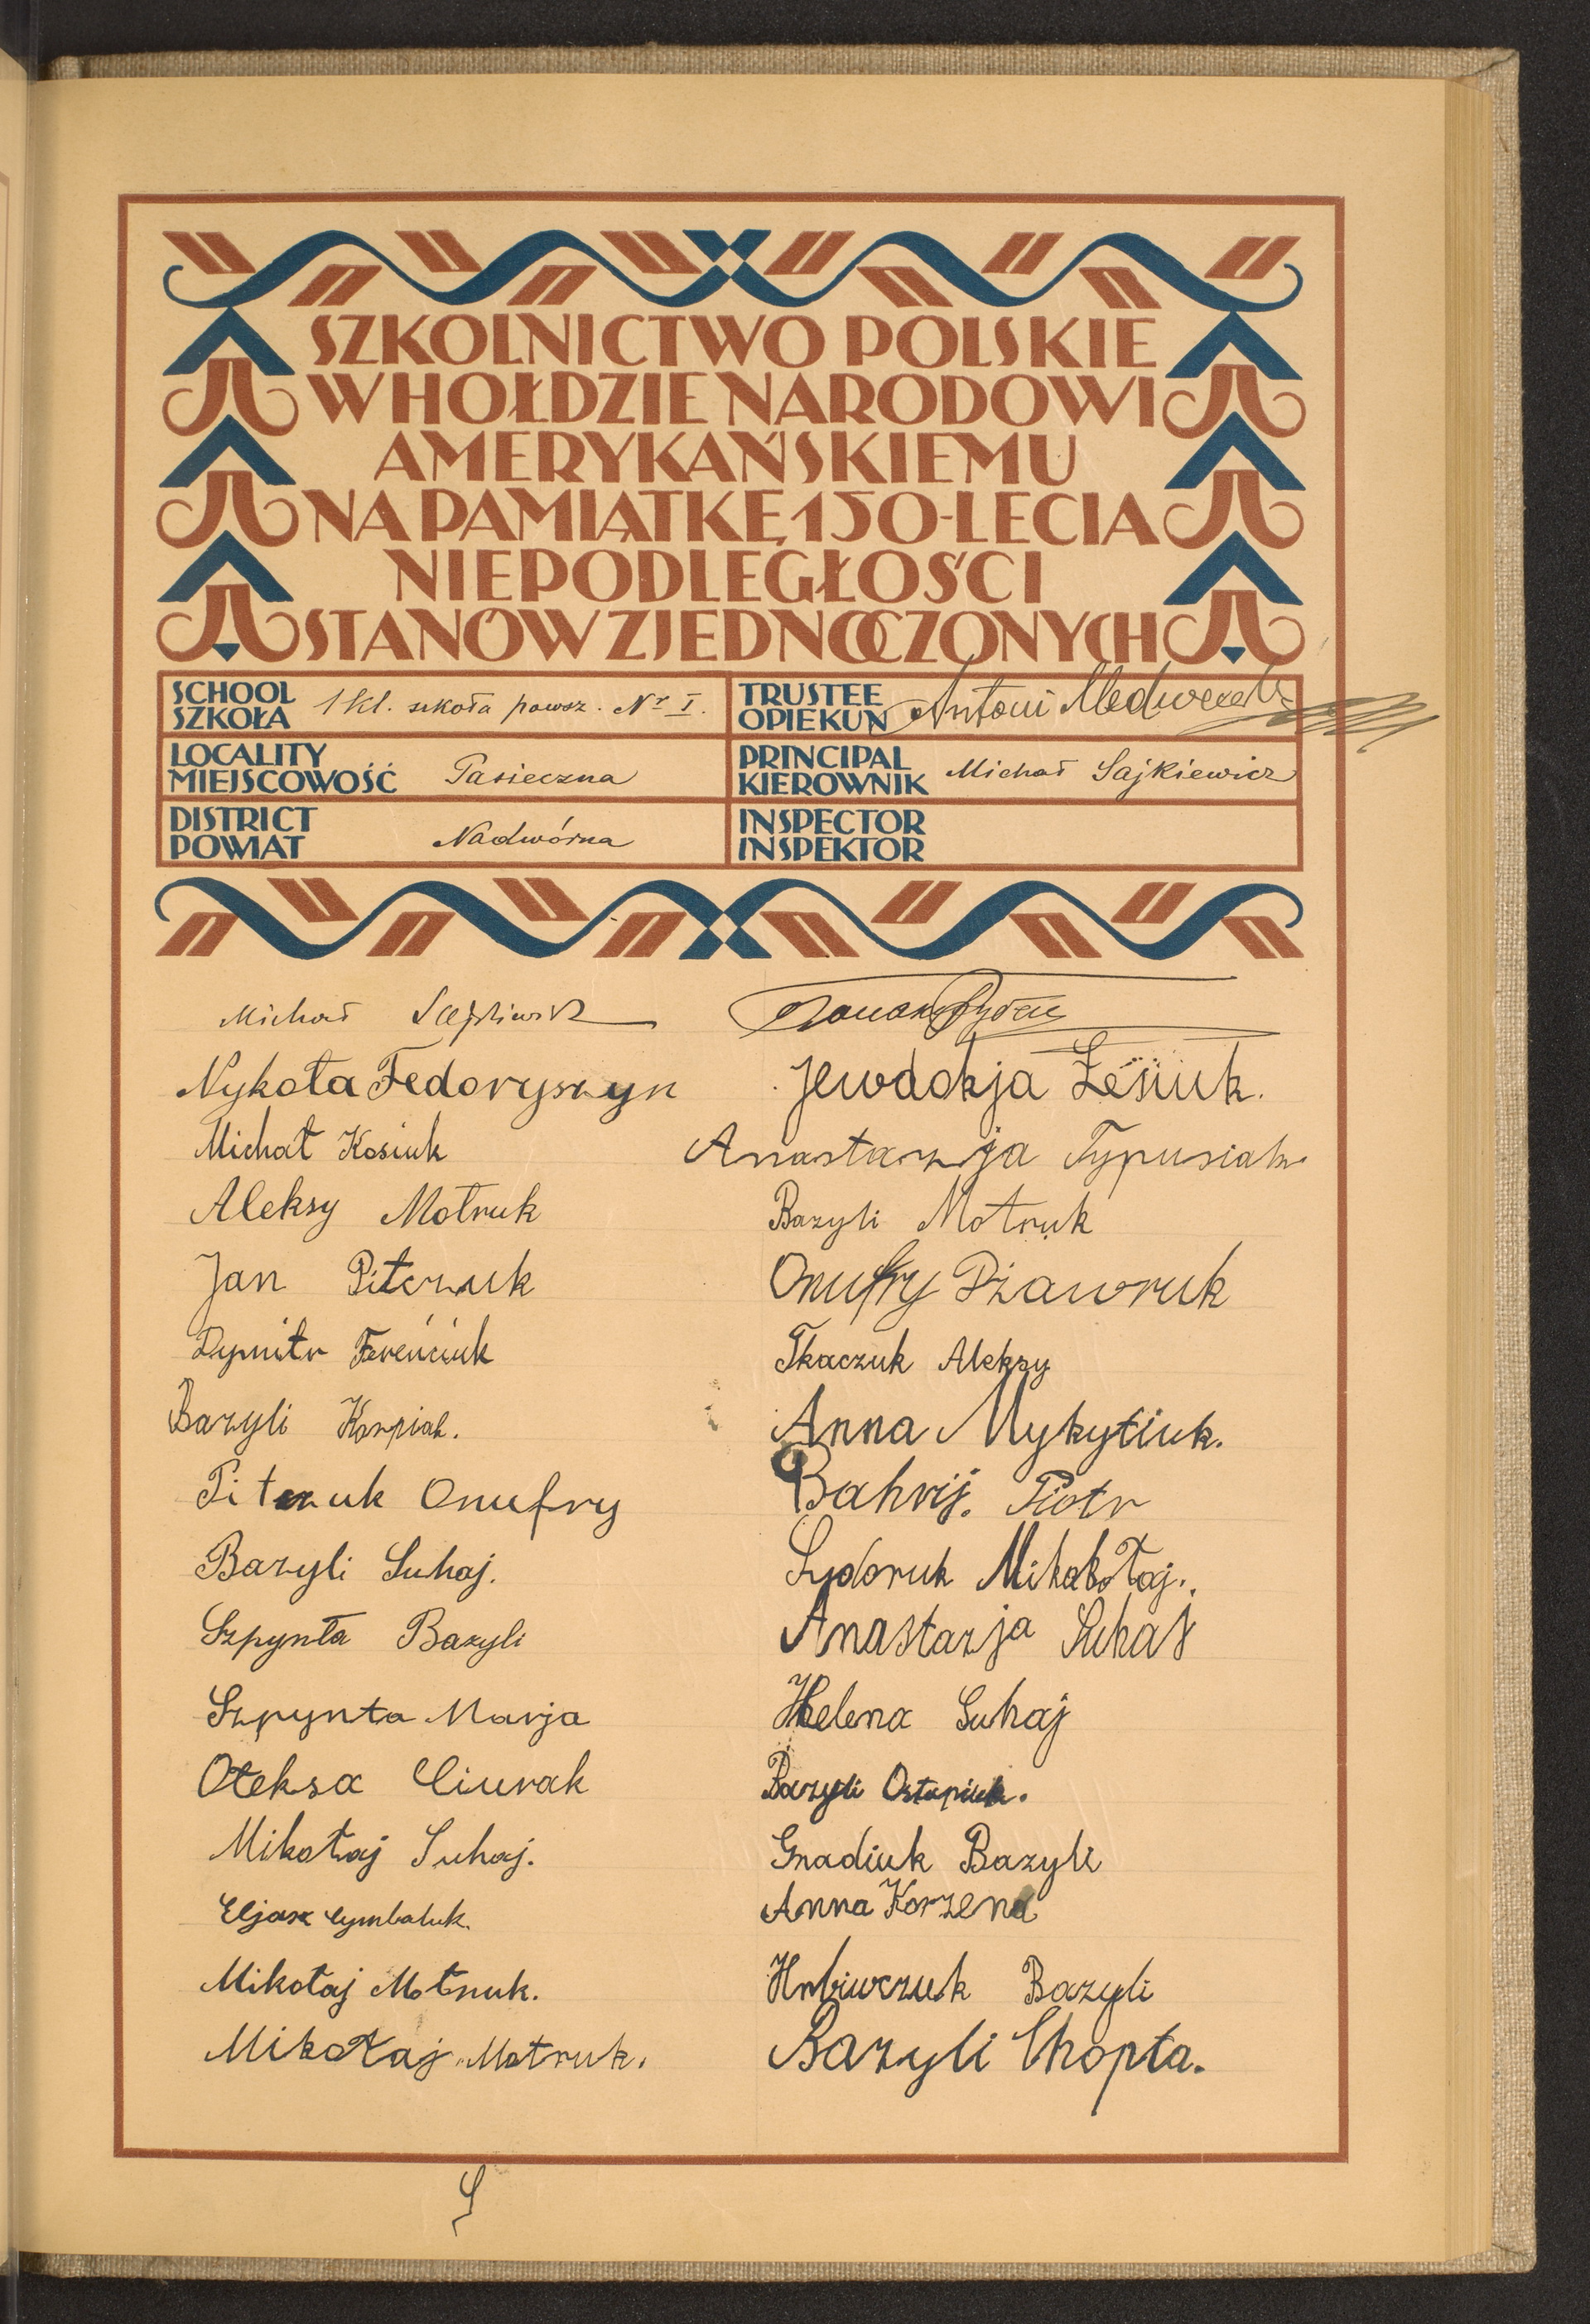 SZKOLNICTWO POLSKIE
W HOŁDZIE NARODOWI
AMERYKAŃSKIEMU
NA PAMIĄTKĘ 150-LECIA
NIEPODLEGŁOŚCI
STANÓW ZJEDNOCZONYCH
SCHOOL
SZKOŁA
1 kl. szkoła powsz. Nr I.
TRUSTEE
OPIEKUN
Antoni
LOCALITY
MIEJSCOWOŚĆ
Pasieczna
PRINCIPAL
KIEROWNIK
Michał Sajkiewicz
DISTRICT
POWIAT
Nadwórna
INSPECTOR
INSPEKTOR
Michał Sajkiewicz
Nykoła Fedoryszyn
Michał Kosiuk
Aleksy Motruk
Jan Pitczuk
Dymitr Fereńciuk
Bazyli Korpiak.
Pitczuk Onufry
Bazyli Suhaj.
Szpynta Bazyli
Szpynta Marja
Ołeksa Ciurak
Mikołaj Suhaj.
Eljasz Cymbaluk.
Mikołaj Motruk.
Mikołaj Motruk.
Jewdokja Łesiuk.
Anastazja Typusiak
Bazyli Motruk
Onufry Dżawruk
Tkaczuk Aleksy
Anna Mykytiuk.
Bahrij. Piotr
Sydoruk Mikołaj.
Anastazja Suhaj
Helena Suhaj
Bazyli Ostapiuk.
Gnadiuk Bazyli
Anna Korzena
Bazyli
Bazyli Chopta.